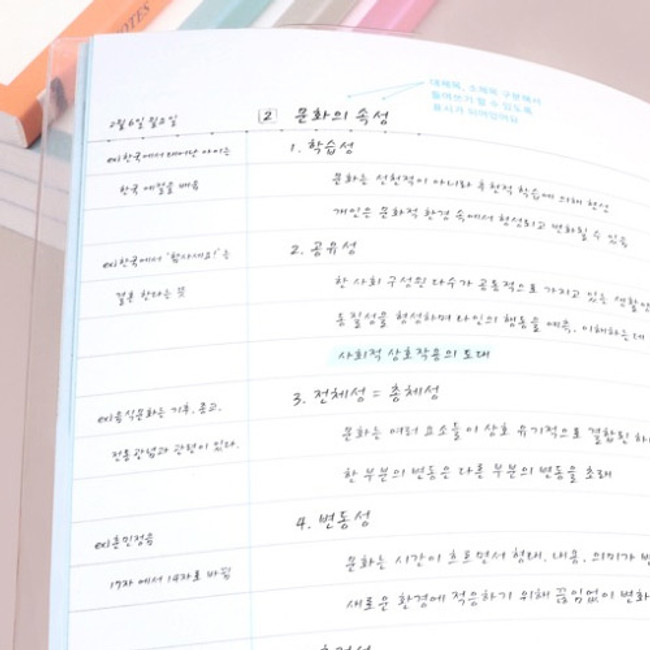 NOTES
대제목, 소제목 구분해서
들여쓰기 할 수 있도록
표시가 되어있어요
2월 6일 월요일
2 문화의 속성
ex)한국에서 태어난 아이는
한국 예절을 배움
1. 학습성
문화는 선천적이 아니라 후천적 학습에 의해 형성
개인은 문화적 환경 속에서 형성되고 변화될 수 있음
ex)한국에서 '함사세요!'는
결혼 한다는 뜻
2. 공유성
한 사회 구성원 다수가 공통적으로 가지고 있는
동질성을 형성하며 타인의 행동을 예측, 이해하는데
사회적 상호작용의 토대
ex)음식문화는 기후, 종교,
전통관념과 관련이 있다.
3. 전체성 = 총체성
문화는 여러 요소들이 상호 유기적으로 결합된
한 부분의 변동은 다른 부분의 변동을 초래
ex)훈민정음
17자에서 14자로 바뀜
4. 변동성
문화는 시간이 흐르면서 형태, 내용, 의미가
새로운 환경에 적응하기 위해 끊임없이 변화